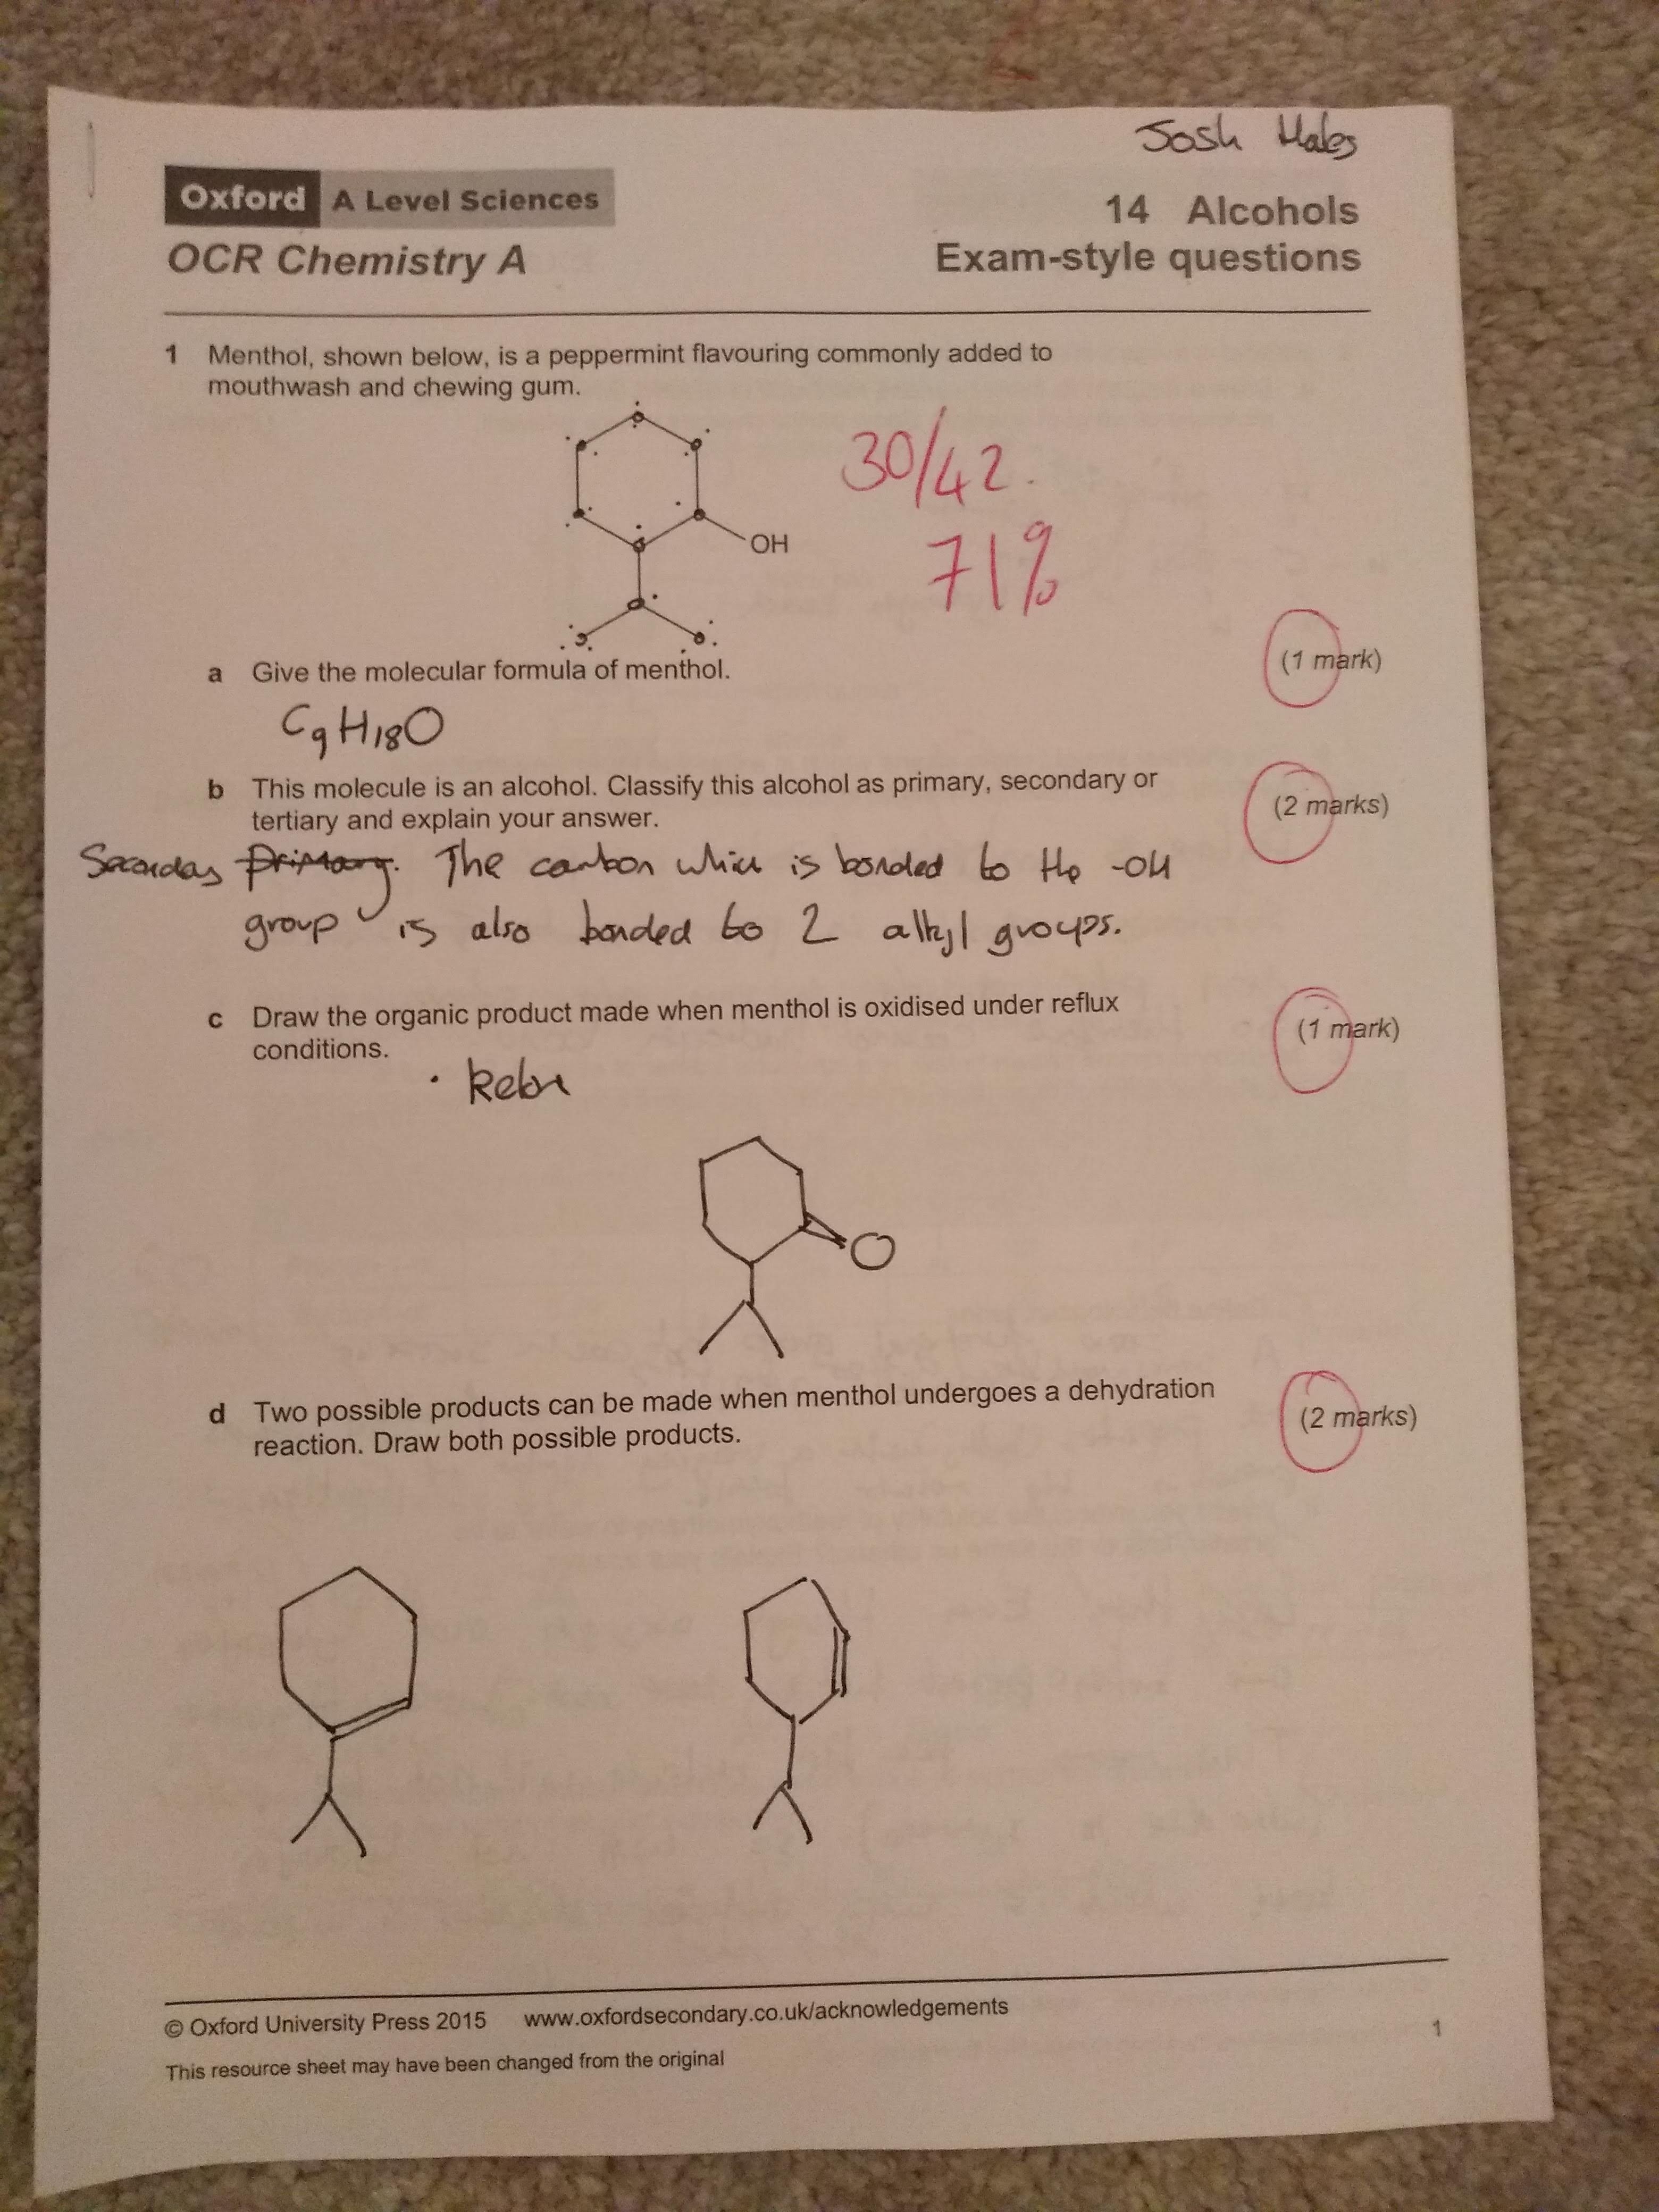 Josh Hales
Oxford A Level Sciences
14 Alcohols
OCR Chemistry A
Exam-style questions
1 Menthol, shown below, is a peppermint flavouring commonly added to
mouthwash and chewing gum.
30/42.
71%
OH
(1 mark)
a Give the molecular formula of menthol.
C9H18O
b This molecule is an alcohol. Classify this alcohol as primary, secondary or
(2 marks)
tertiary and explain your answer.
Seconday Primary. The carbon which is bonded to the -OH
group is also bonded to 2 alkyl groups.
c Draw the organic product made when menthol is oxidised under reflux
(1 mark)
conditions.
O
d Two possible products can be made when menthol undergoes a dehydration
(2 marks)
reaction. Draw both possible products.
© Oxford University Press 2015 www.oxfordsecondary.co.uk/acknowledgements
1
This resource sheet may have been changed from the original